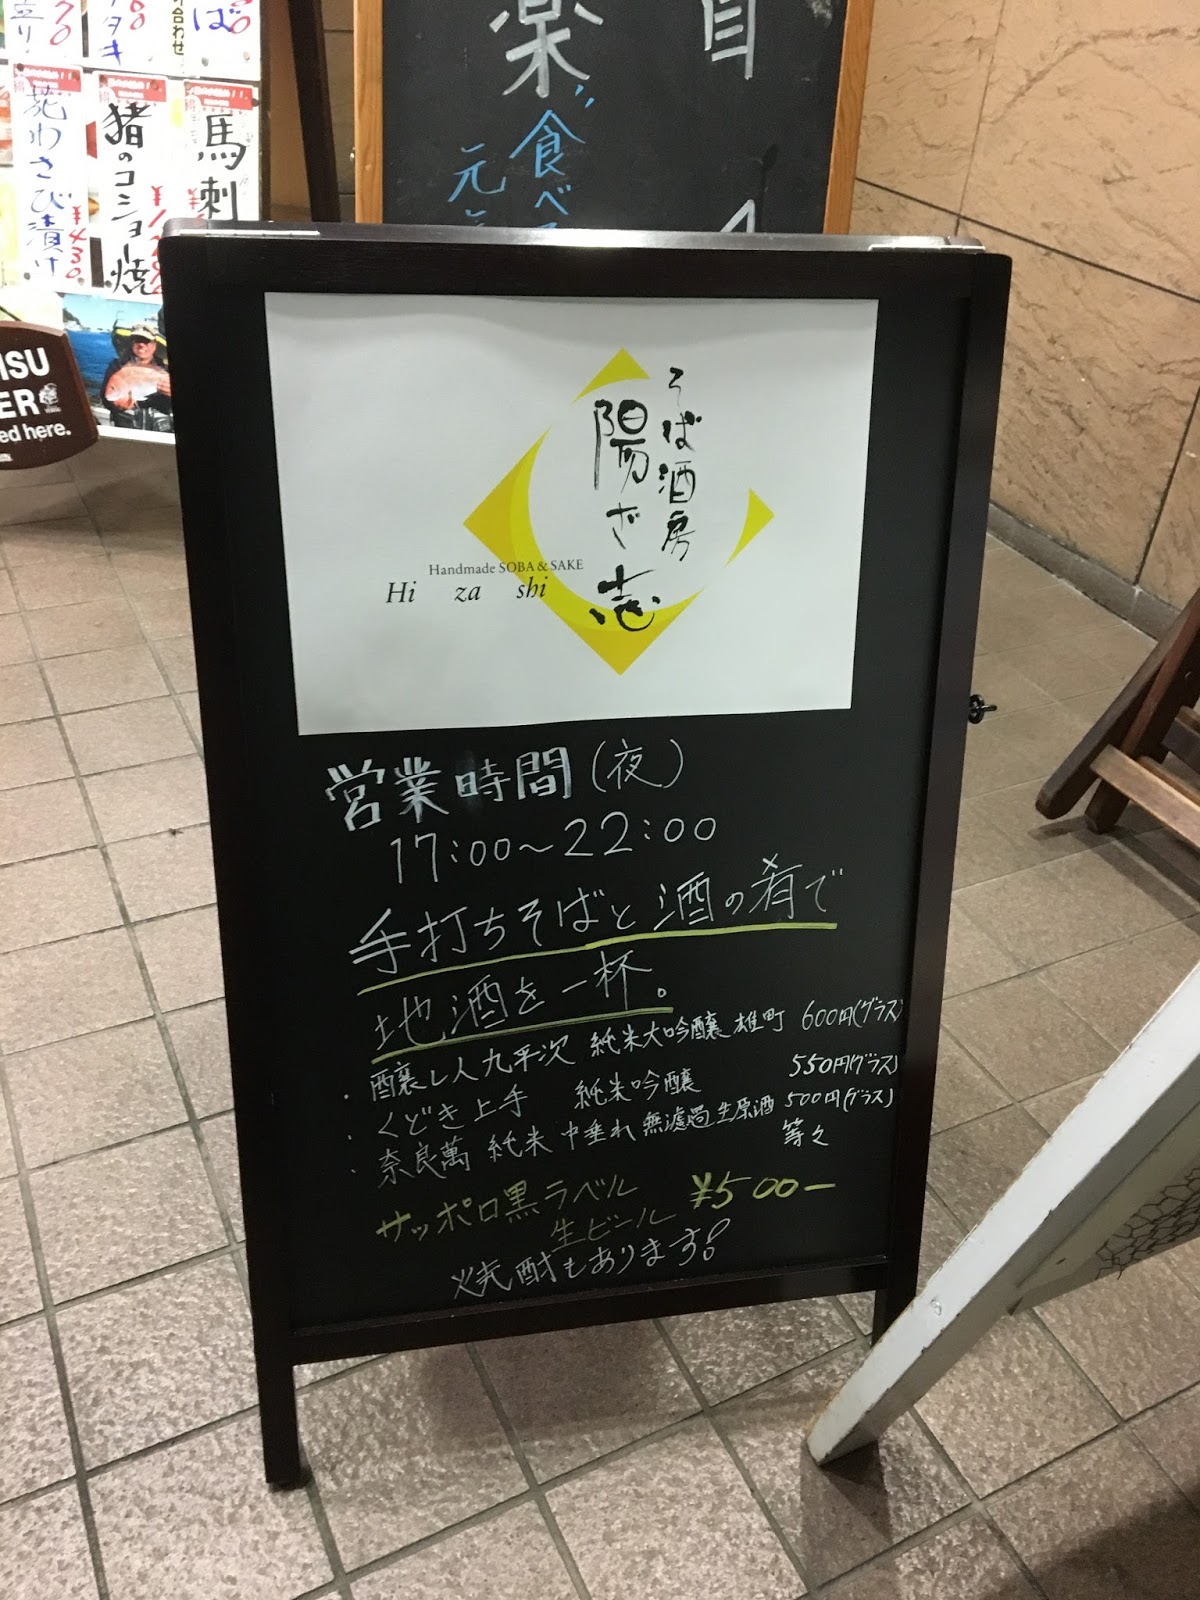 花わさび漬け
¥430
猪のコショー焼
馬刺
楽
食べ
元
目
そば酒房
陽ざ志
Handmade SOBA & SAKE
Hi za shi
営業時間(夜)
17:00〜22:00
手打ちそばと酒の肴で
地酒を一杯。
・醸し人九平次 純米大吟醸 雄町 600円(グラス)
・くどき上手 純米吟醸 550円(グラス)
・奈良萬 純米 中垂れ 無濾過生原酒 500円(グラス)
等々
サッポロ黒ラベル
生ビール ¥500−
焼酎もあります!
ISU
ER
ed here.